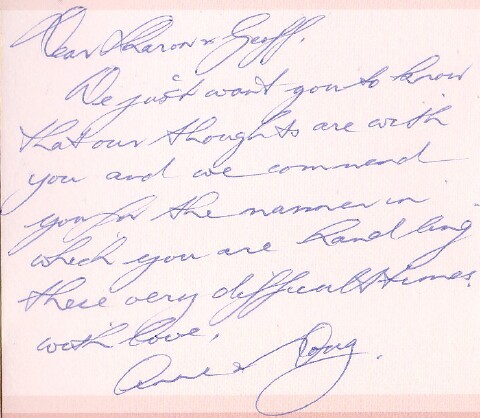 Dear Sharon & Geoff,
We just want you to know
that our thoughts are with
you and we commend
you for the manner in
which you are handling
these very difficult times.
with love,
Anne & Doug.